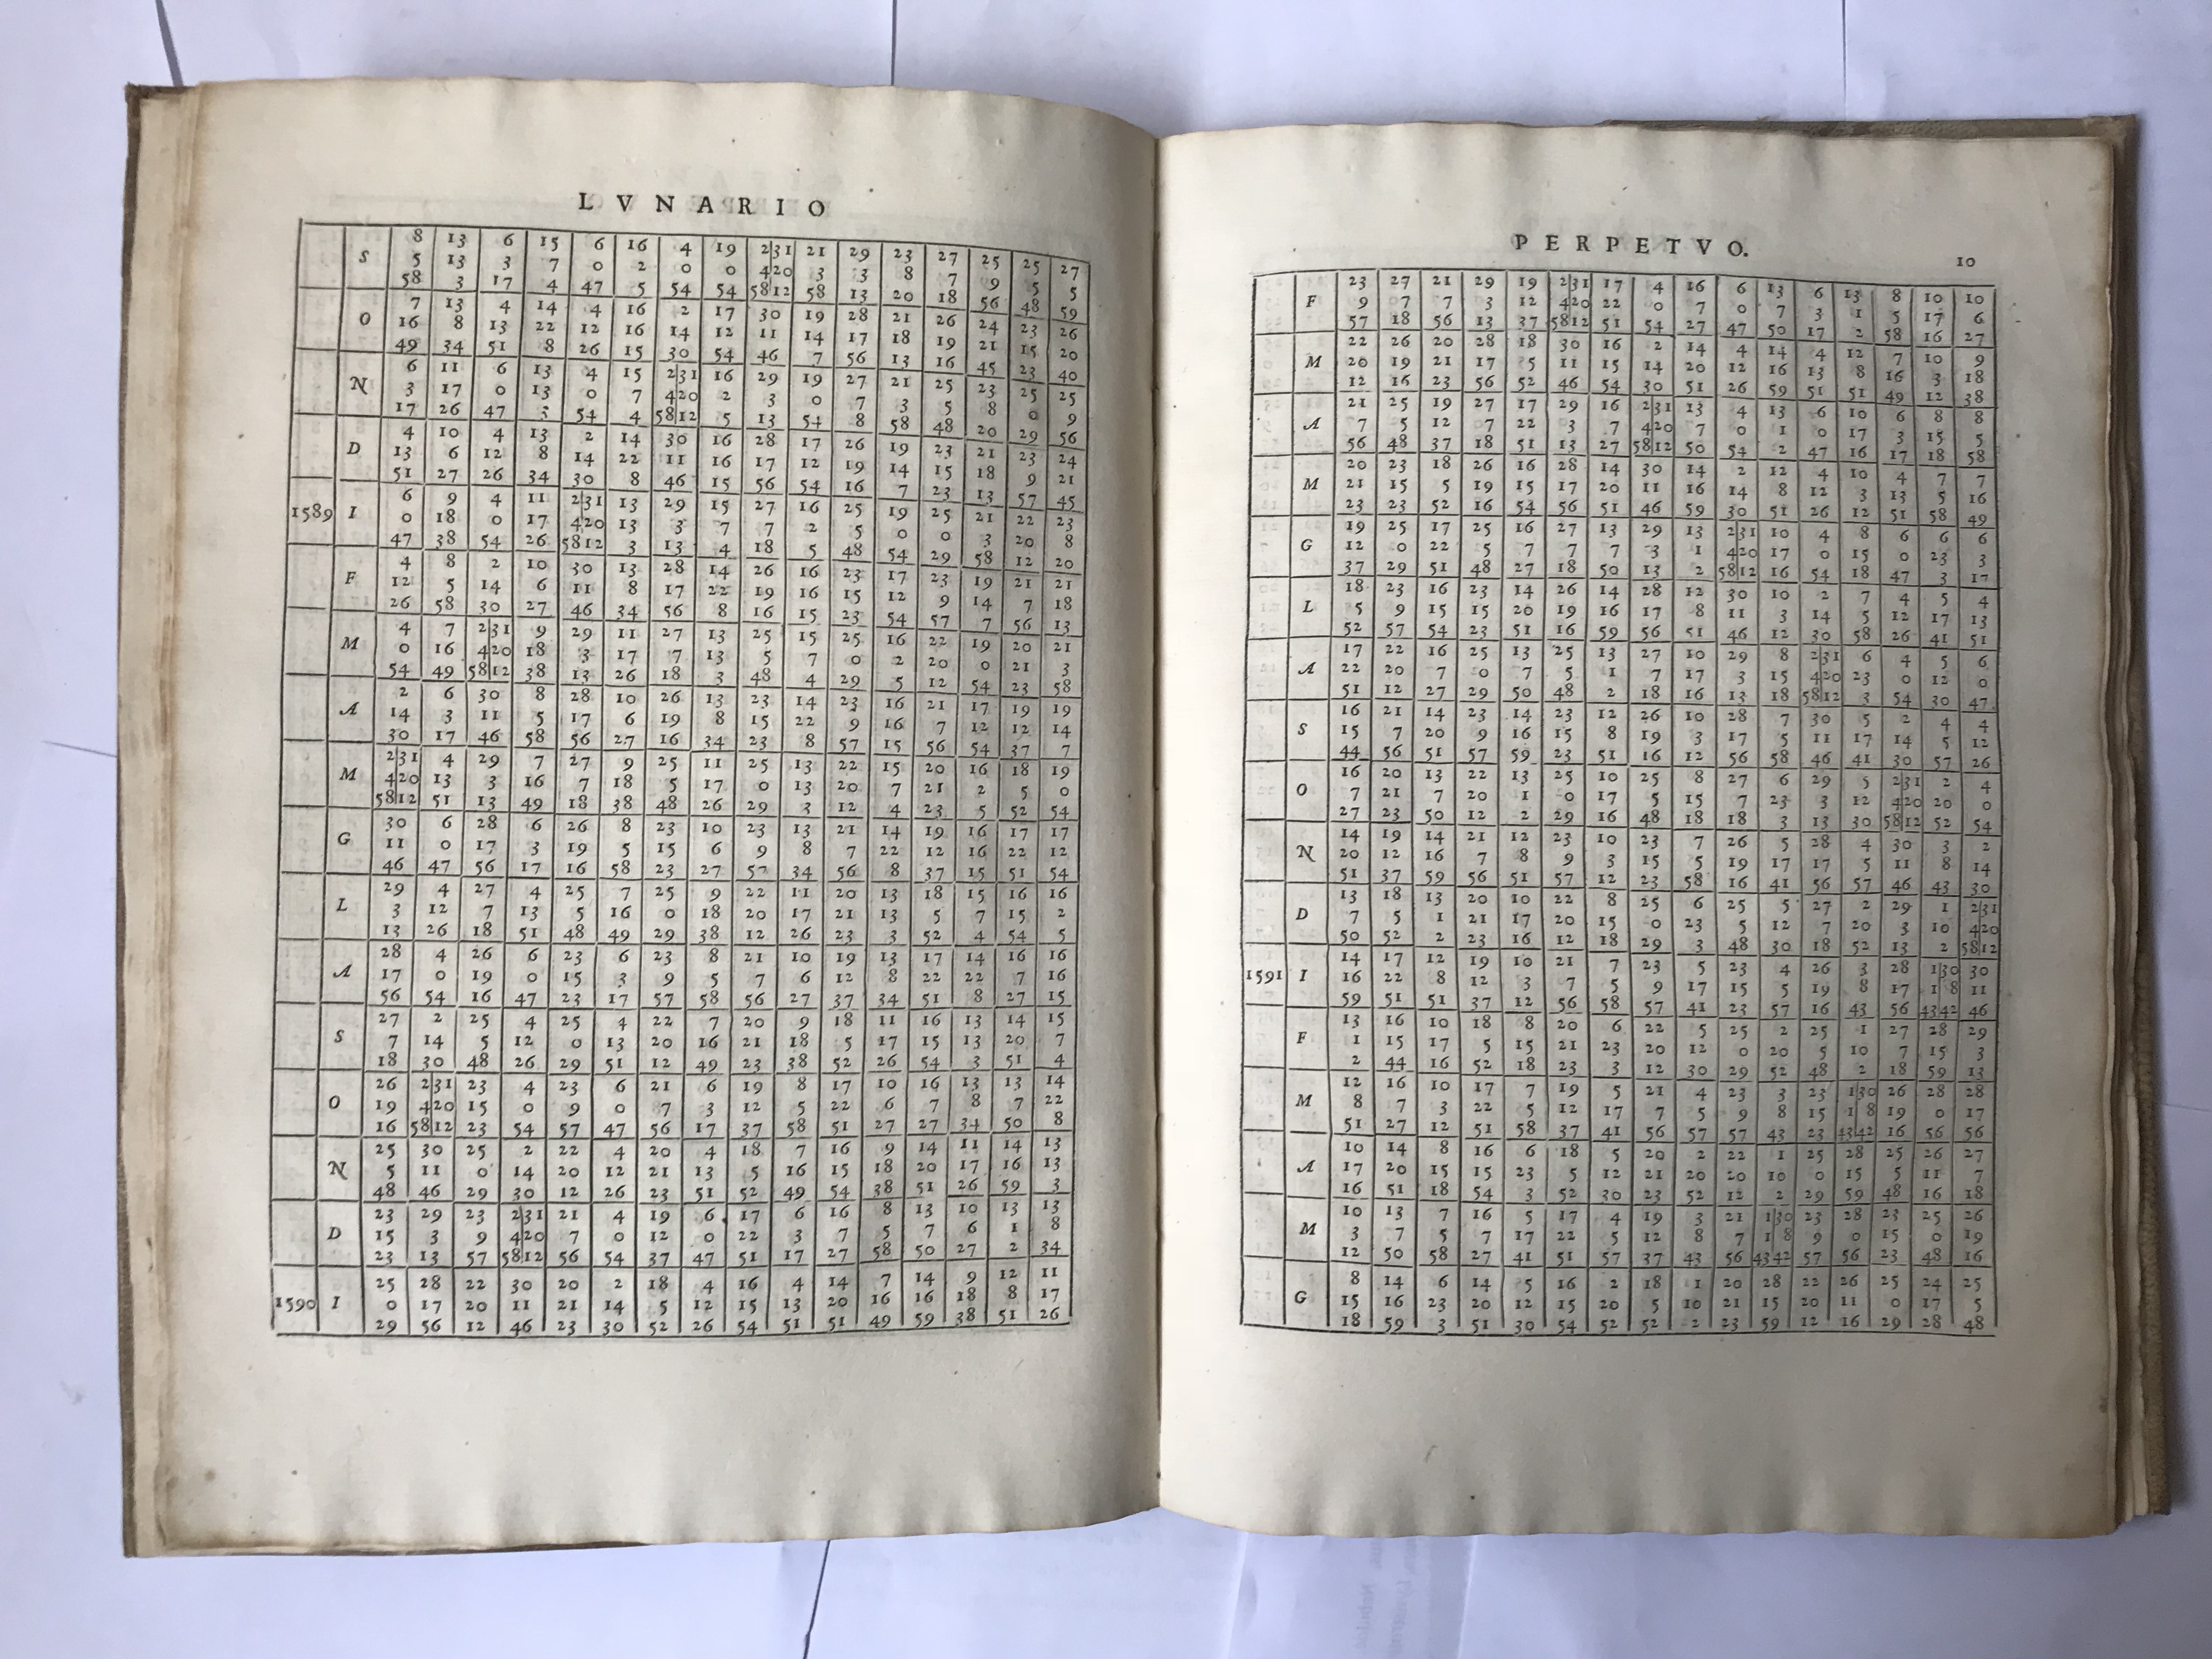 LVNARIO
S 8 13 6 15 6 16 4 19 2|31 21 29 23 27 25 25 27
5 13 3 7 0 2 0 0 4|20 3 3 8 7 9 5 5
58 3 17 4 47 5 54 54 58|12 58 13 20 18 56 48 59
O 7 13 4 14 4 16 2 17 30 19 28 21 26 24 23 26
16 8 13 22 12 16 14 12 11 14 17 18 19 21 15 20
49 34 51 8 26 15 30 54 46 7 56 13 16 45 23 40
N 6 11 6 13 4 15 2|31 16 29 19 27 21 25 23 25 25
3 17 0 13 0 7 4|20 2 3 0 7 3 5 8 0 9
17 26 47 3 54 4 58|12 5 13 54 8 58 48 20 29 56
D 4 10 4 13 2 14 30 16 28 17 26 19 23 21 23 24
13 6 12 8 14 22 11 16 17 12 19 14 15 18 9 21
51 27 26 34 30 8 46 15 56 54 16 7 23 13 57 45
1589 I 6 9 4 11 2|31 13 29 15 27 16 25 19 25 21 22 23
0 18 0 17 4|20 13 3 7 7 2 5 0 0 3 20 8
47 38 54 26 58|12 3 13 4 18 5 48 54 29 58 12 20
F 4 8 2 10 30 13 28 14 26 16 23 17 23 19 21 21
12 5 14 6 11 8 17 22 19 16 15 12 9 14 7 18
26 58 30 27 46 34 56 8 16 15 23 54 57 7 56 13
M 4 7 2|31 9 29 11 27 13 25 15 25 16 22 19 20 21
0 16 4|20 18 3 17 7 13 5 7 0 2 20 0 21 3
54 49 58|12 38 13 26 18 3 48 4 29 5 12 54 23 58
A 2 6 30 8 28 10 26 13 23 14 23 16 21 17 19 19
14 3 11 5 17 6 19 8 15 22 9 16 7 12 12 14
30 17 46 58 56 27 16 34 23 8 57 15 56 54 37 7
M 2|31 4 29 7 27 9 25 11 25 13 22 15 20 16 18 19
4|20 13 3 16 7 18 5 17 0 13 20 7 21 2 5 0
58|12 51 13 49 18 38 48 26 29 3 12 4 23 5 52 54
G 30 6 28 6 26 8 23 10 23 13 21 14 19 16 17 17
11 0 17 3 19 5 15 6 9 8 7 22 12 16 22 12
46 47 56 17 16 58 23 27 57 34 56 8 37 15 51 54
L 29 4 27 4 25 7 25 9 22 11 20 13 18 15 16 16
3 12 7 13 5 16 0 18 20 17 21 13 5 7 15 2
13 26 18 51 48 49 29 38 12 26 23 3 52 4 54 5
A 28 4 26 6 23 6 23 8 21 10 19 13 17 14 16 16
17 0 19 0 15 3 9 5 7 6 12 8 22 22 7 16
56 54 16 47 23 17 57 58 56 27 37 34 51 8 27 15
S 27 2 25 4 25 4 22 7 20 9 18 11 16 13 14 15
7 14 5 12 0 13 20 16 21 18 5 17 15 13 20 7
18 30 48 26 29 51 12 49 23 38 52 26 54 3 51 4
O 26 2|31 23 4 23 6 21 6 19 8 17 10 16 13 13 14
19 4|20 15 0 9 0 7 3 12 5 22 6 7 8 7 22
16 58|12 23 54 57 47 56 17 37 58 51 27 27 34 50 8
N 25 30 25 2 22 4 20 4 18 7 16 9 14 11 14 13
5 11 0 14 20 12 21 13 5 16 15 18 20 17 16 13
48 46 29 30 12 26 23 51 52 49 54 38 51 26 59 3
D 23 29 23 2|31 21 4 19 6 17 6 16 8 13 10 13 13
15 3 9 4|20 7 0 12 0 22 3 7 5 7 6 1 8
23 13 57 58|12 56 54 37 47 51 17 27 58 50 27 2 34
1590 I 25 28 22 30 20 2 18 4 16 4 14 7 14 9 12 11
0 17 20 11 21 14 5 12 15 13 20 16 16 18 8 17
29 56 12 46 23 30 52 26 54 51 51 49 59 38 51 26
PERPETVO.
10
F 23 27 21 29 19 2|31 17 4 16 6 13 6 13 8 10 10
9 7 7 3 12 4|20 22 0 7 0 7 3 1 5 17 6
57 18 56 13 37 58|12 51 54 27 47 50 17 2 58 16 27
M 22 26 20 28 18 30 16 2 14 4 14 4 12 7 10 9
20 19 21 17 5 11 15 14 20 12 16 13 8 16 3 18
12 16 23 56 52 46 54 30 51 26 59 51 51 49 12 38
A 21 25 19 27 17 29 16 2|31 13 4 13 6 10 6 8 8
7 5 12 7 22 3 7 4|20 7 0 1 0 17 3 15 5
56 48 37 18 51 13 27 58|12 50 54 2 47 16 17 18 58
M 20 23 18 26 16 28 14 30 14 2 12 4 10 4 7 7
21 15 5 19 15 17 20 11 16 14 8 12 3 13 5 16
23 23 52 16 54 56 51 46 59 30 51 26 12 51 58 49
G 19 25 17 25 16 27 13 29 13 2|31 10 4 8 6 6 6
12 0 22 5 7 7 7 3 1 4|20 17 0 15 0 23 3
37 29 51 48 27 18 50 13 2 58|12 16 54 18 47 3 17
L 18 23 16 23 14 26 14 28 12 30 10 2 7 4 5 4
5 9 15 15 20 19 16 17 8 11 3 14 5 12 17 13
52 57 54 23 51 16 59 56 51 46 12 30 58 26 41 51
A 17 22 16 25 13 25 13 27 10 29 8 2|31 6 4 5 6
22 20 7 0 7 5 1 7 17 3 15 4|20 23 0 12 0
51 12 27 29 50 48 2 18 16 13 18 58|12 3 54 30 47
S 16 21 14 23 14 23 12 26 10 28 7 30 5 2 4 4
15 7 20 9 16 15 8 19 3 17 5 11 17 14 5 12
44 56 51 57 59 23 51 16 12 56 58 46 41 30 57 26
O 16 20 13 22 13 25 10 25 8 27 6 29 5 2|31 2 4
7 21 7 20 1 0 17 5 15 7 23 3 12 4|20 20 0
27 23 50 12 2 29 16 48 18 18 3 13 30 58|12 52 54
N 14 19 14 21 12 23 10 23 7 26 5 28 4 30 3 2
20 12 16 7 8 9 3 15 5 19 17 17 5 11 8 14
51 37 59 56 51 57 12 23 58 16 41 56 57 46 43 30
D 13 18 13 20 10 22 8 25 6 25 5 27 2 29 1 2|31
7 5 1 21 17 20 15 0 23 5 12 7 20 3 10 4|20
50 52 2 23 16 12 18 29 3 48 30 18 52 13 2 58|12
1591 I 14 17 12 19 10 21 7 23 5 23 4 26 3 28 1|30 30
16 22 8 12 3 7 5 9 17 15 5 19 8 17 1|8 11
59 51 51 37 12 56 58 57 41 23 57 16 43 56 43|42 46
F 13 16 10 18 8 20 6 22 5 25 2 25 1 27 28 29
1 15 17 5 15 21 23 20 12 0 20 5 10 7 15 3
2 44 16 52 18 23 3 12 30 29 52 48 2 18 59 13
M 12 16 10 17 7 19 5 21 4 23 3 23 1|30 26 28 28
8 7 3 22 5 12 17 7 5 9 8 15 1|8 19 0 17
51 27 12 51 58 37 41 56 57 57 43 23 43|42 16 56 56
A 10 14 8 16 6 18 5 20 2 22 1 25 28 25 26 27
17 20 15 15 23 5 12 21 20 20 10 0 15 5 11 7
16 51 18 54 3 52 30 23 52 12 2 29 59 48 16 18
M 10 13 7 16 5 17 4 19 3 21 1|30 23 28 23 25 26
3 7 5 7 17 22 5 12 8 7 1|8 9 0 15 0 19
12 50 58 27 41 51 57 37 43 56 43|42 57 56 23 48 16
G 8 14 6 14 5 16 2 18 1 20 28 22 26 25 24 25
15 16 23 20 12 15 20 5 10 21 15 20 11 0 17 5
18 59 3 51 30 54 52 52 2 23 59 12 16 29 28 48